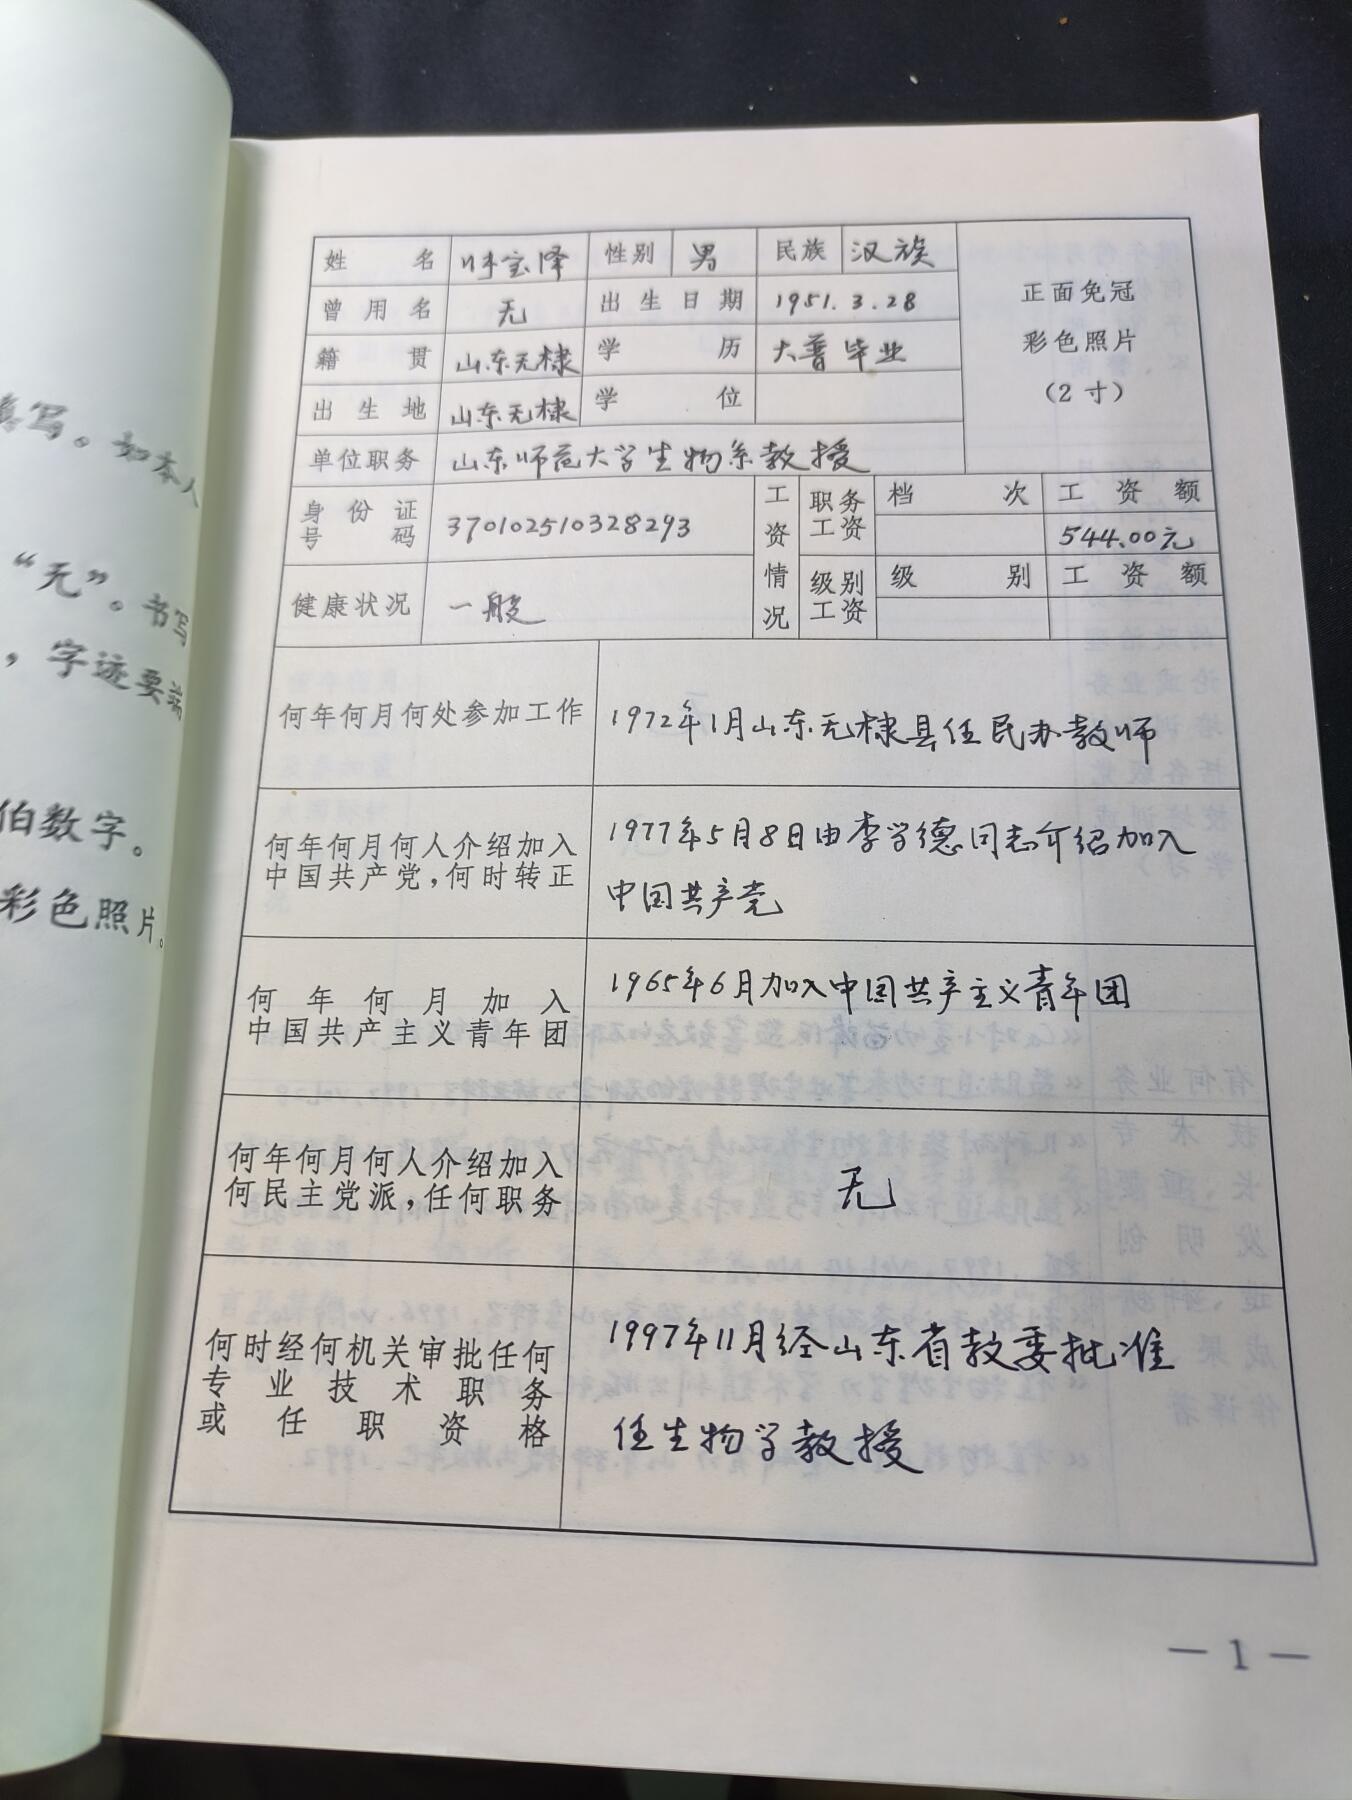 真写。如本人
“无”。书写
，字迹要端
伯数字。
彩色照片。
姓名 时宝泽 性别 男 民族 汉族
曾用名 无 出生日期 1951.3.28
籍贯 山东无棣 学历 大普毕业
出生地 山东无棣 学位
正面免冠
彩色照片
（2寸）
单位职务 山东师范大学生物系教授
身份证
号码 370102510328293
工资情况 职务
工资 档次 工资额
544.00元
健康状况 一般
级别
工资 级别 工资额
何年何月何处参加工作 1972年1月山东无棣县任民办教师
何年何月何人介绍加入
中国共产党，何时转正
1977年5月8日由李学德同志介绍加入
中国共产党
何年何月加入
中国共产主义青年团
1965年6月加入中国共产主义青年团
何年何月何人介绍加入
何民主党派，任何职务
无
何时经何机关审批任何
专业技术职务
或任职资格
1997年11月经山东省教委批准
任生物学教授
— 1 —